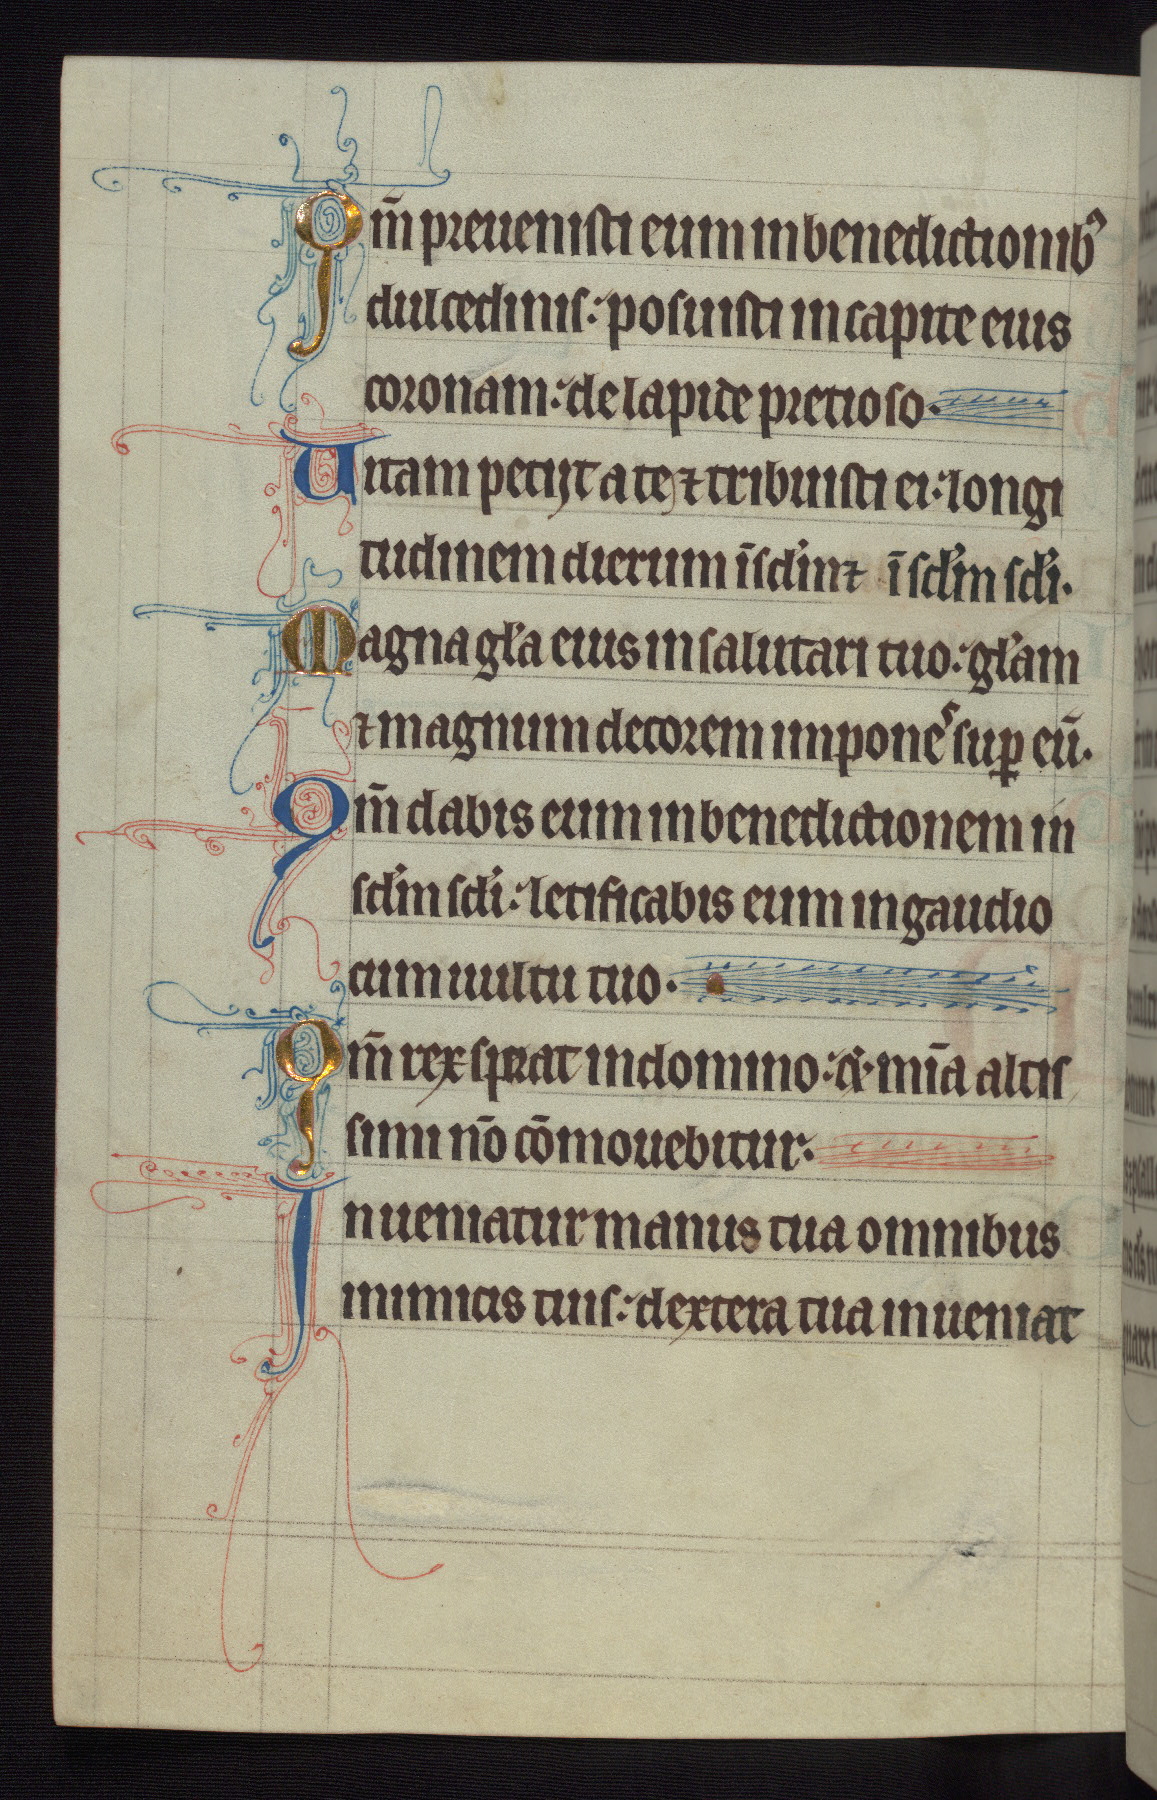 Qm̄ preuenisti eum in benedictionibꝰ
dulcedinis: posuisti in capite eius
coronam: de lapide pretioso.
Uitam petijt a te ⁊ tribuisti ei: longi
tudinem dierum ī scl̓m ⁊ ī scl̓m scl̓i.
Magna gl̓a eius in salutari tuo: gl̓am
⁊ magnum decorem imponeˢ suꝑ eū.
Qm̄ dabis eum in benedictionem in
scl̓m scl̓i: letificabis eum in gaudio
cum uultu tuo.
Qm̄ rex sperat in domino: & mīa altis
simi nō cōmouebitur.
Inueniatur manus tua omnibus
inimicis tuis: dextera tua inueniat